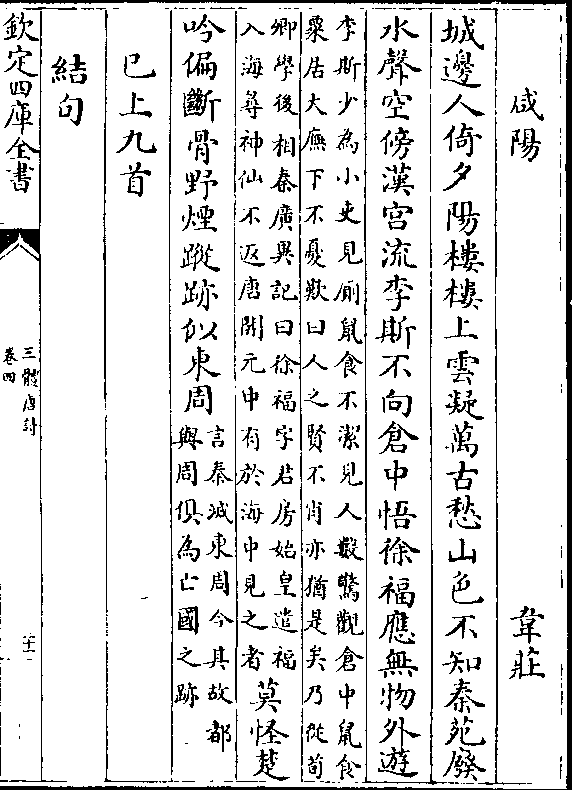 咸陽 韋莊
城邊人倚夕陽樓樓上雲凝萬古愁山色不知秦苑廢
水聲空傍漢宮流李斯不向倉中悟徐福應無物外遊
李斯少為小吏見厠鼠食不潔見人數驚觀倉中鼠食
粟居大廡下不憂歎曰人之賢不肖亦猶是矣乃從荀
卿學後相秦廣異記曰徐福字君房始皇遣福
入海尋神仙不返唐開元中有於海中見之者
莫怪楚
吟偏斷骨野煙蹤跡似東周
言秦滅東周今其故都
與周俱為亡國之跡
已上九首
結句
欽定四庫全書
三體唐詩
卷四